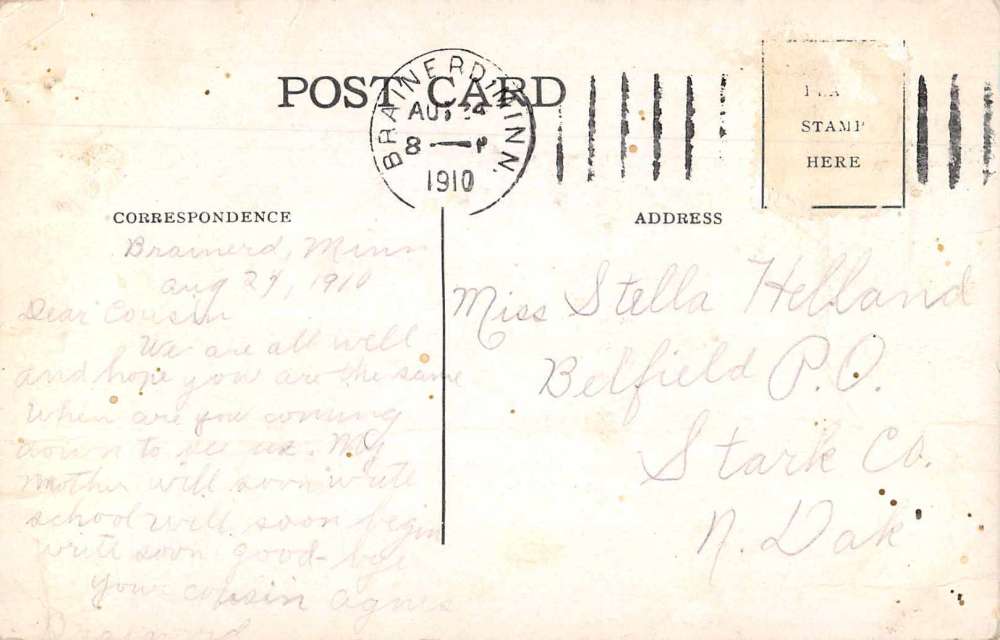 POST CARD
BRAINERD, MINN.
AUG 24
8 — P
1910
STAMP
HERE
CORRESPONDENCE
ADDRESS
Brainerd, Minn
Aug 24, 1910
Dear Cousin
We are all well
and hope you are the same
When are you coming
down to see us. My
mother will soon write
school will soon begin
write soon good-bye
your cousin Agnes
Miss Stella Helland
Belfield P.O.
Stark Co.
N. Dak